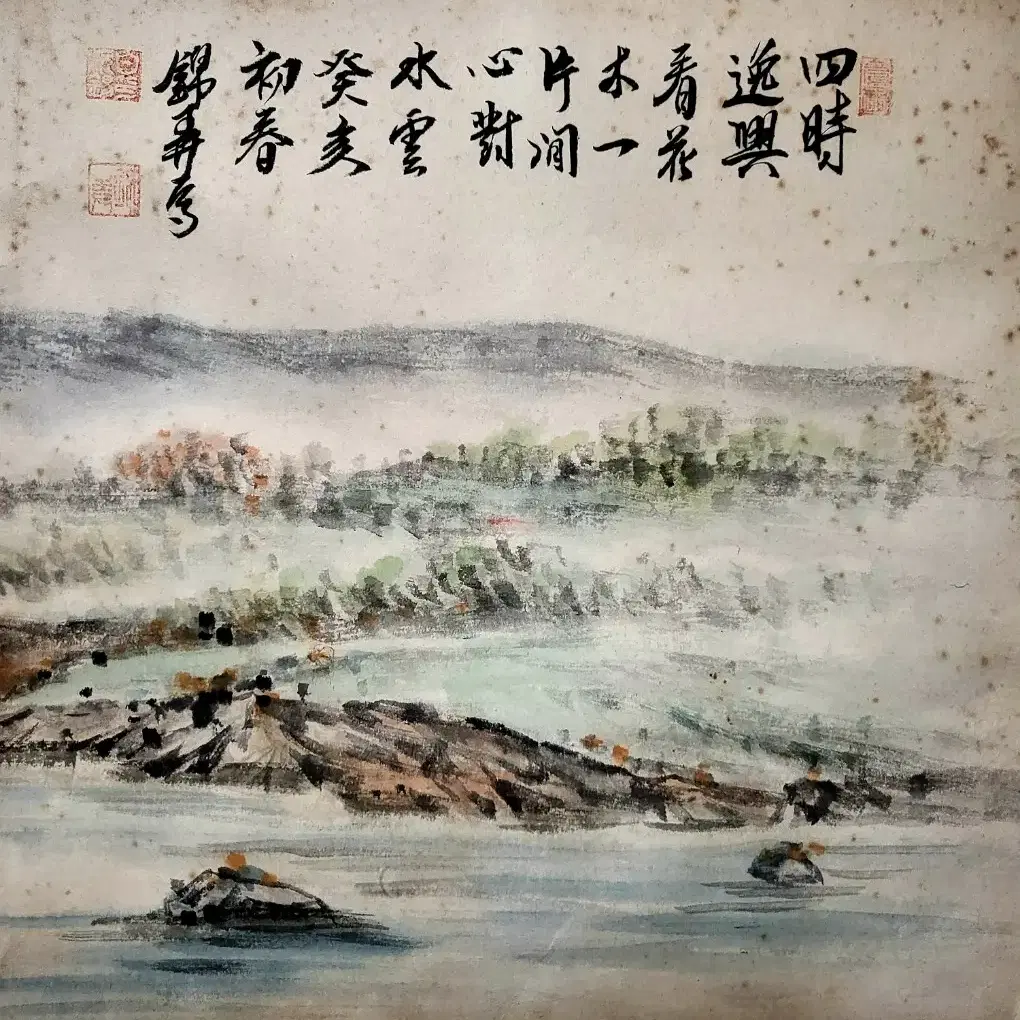 四時
逸興
看花
木一
片閒
心對
水雲
癸亥
初春
錦弄寫